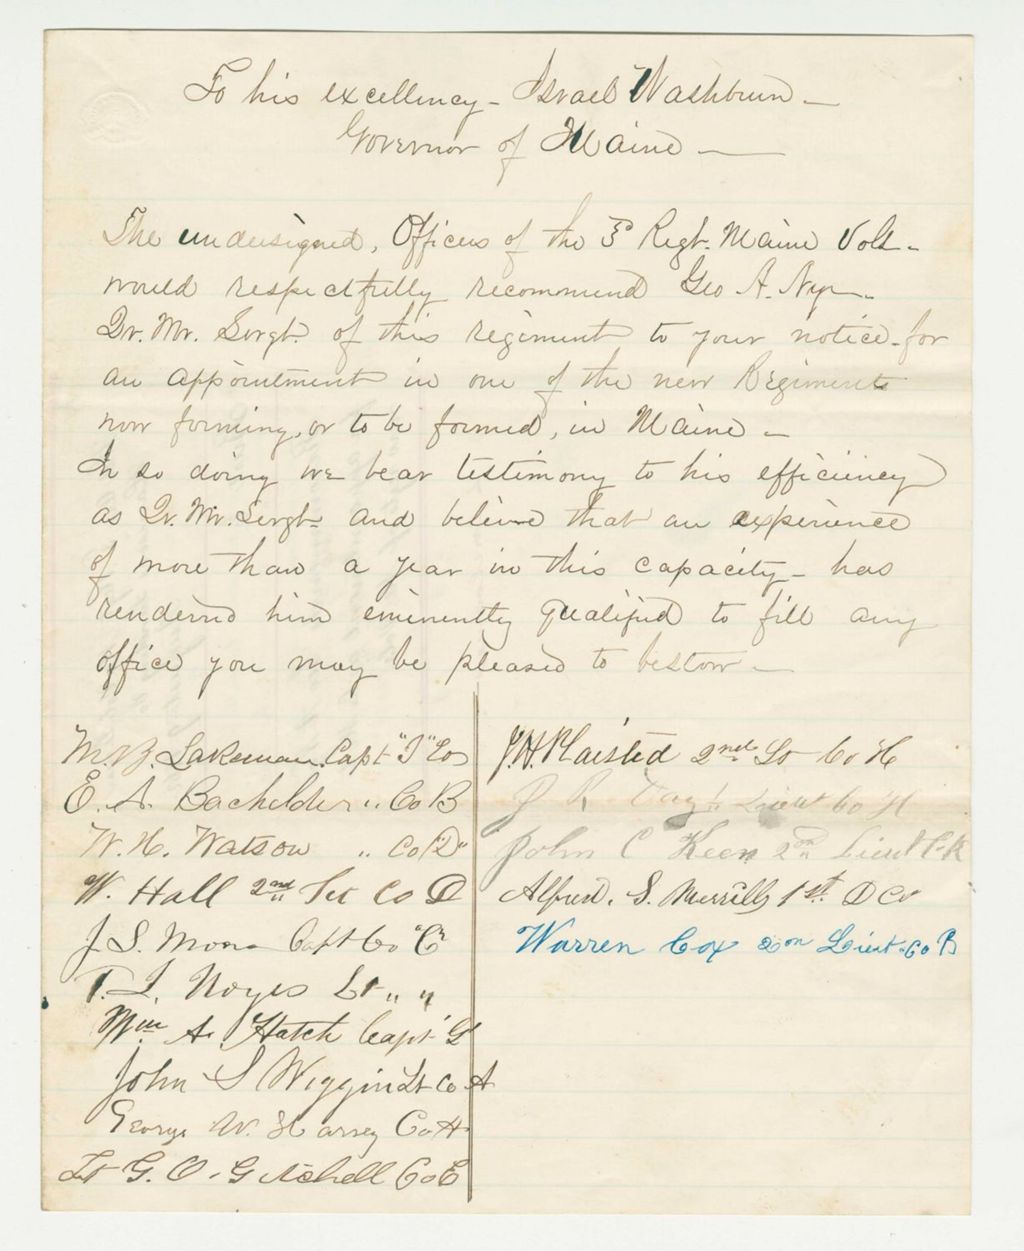 To his excellency - Israel Washburn -
Governor of Maine -
The undersigned, Officers of the 3d Regt. Maine Vols -
would respectfully recommend Geo A. Nye -
Qr. Mr. Sergt. of this regiment to your notice - for
an appointment in one of the new Regiments
now forming, or to be formed, in Maine -
In so doing we bear testimony to his efficiency
as Qr. Mr. Sergt - and believe that an experience
of more than a year in this capacity - has
rendered him eminently qualified to fill any
office you may be pleased to bestow -
M.B. Lakeman, Capt "I" Co
E. A. Bachelder " Co B
W. H. Watson " Co "D"
W. Hall 2nd Lt Co D
J S. Moore Capt Co "C"
T. I. Noyes Lt " "
Wm A. Hatch Capt G
John S Wiggin Lt Co A
George W. Harvey Co H
Lt G. O. Getchell Co E
J.H. Plaisted 2nd Lt Co H
J R Day Lieut Co H
John C Keen 2nd Lieut Co K
Alfred. S. Merrill 1st. D Co
Warren Cox 2on Lieut. Co B